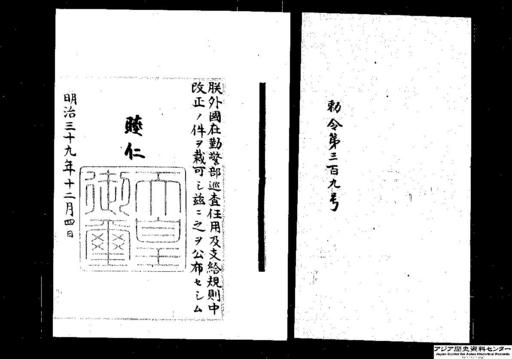 勅令第三百九号
朕外國在勤警部巡査任用及支給規則中
改正ノ件ヲ裁可シ茲ニ之ヲ公布セシム
睦仁
天皇
御璽
明治三十九年十二月四日
アジア歴史資料センター
Japan Center for Asian Historical Records